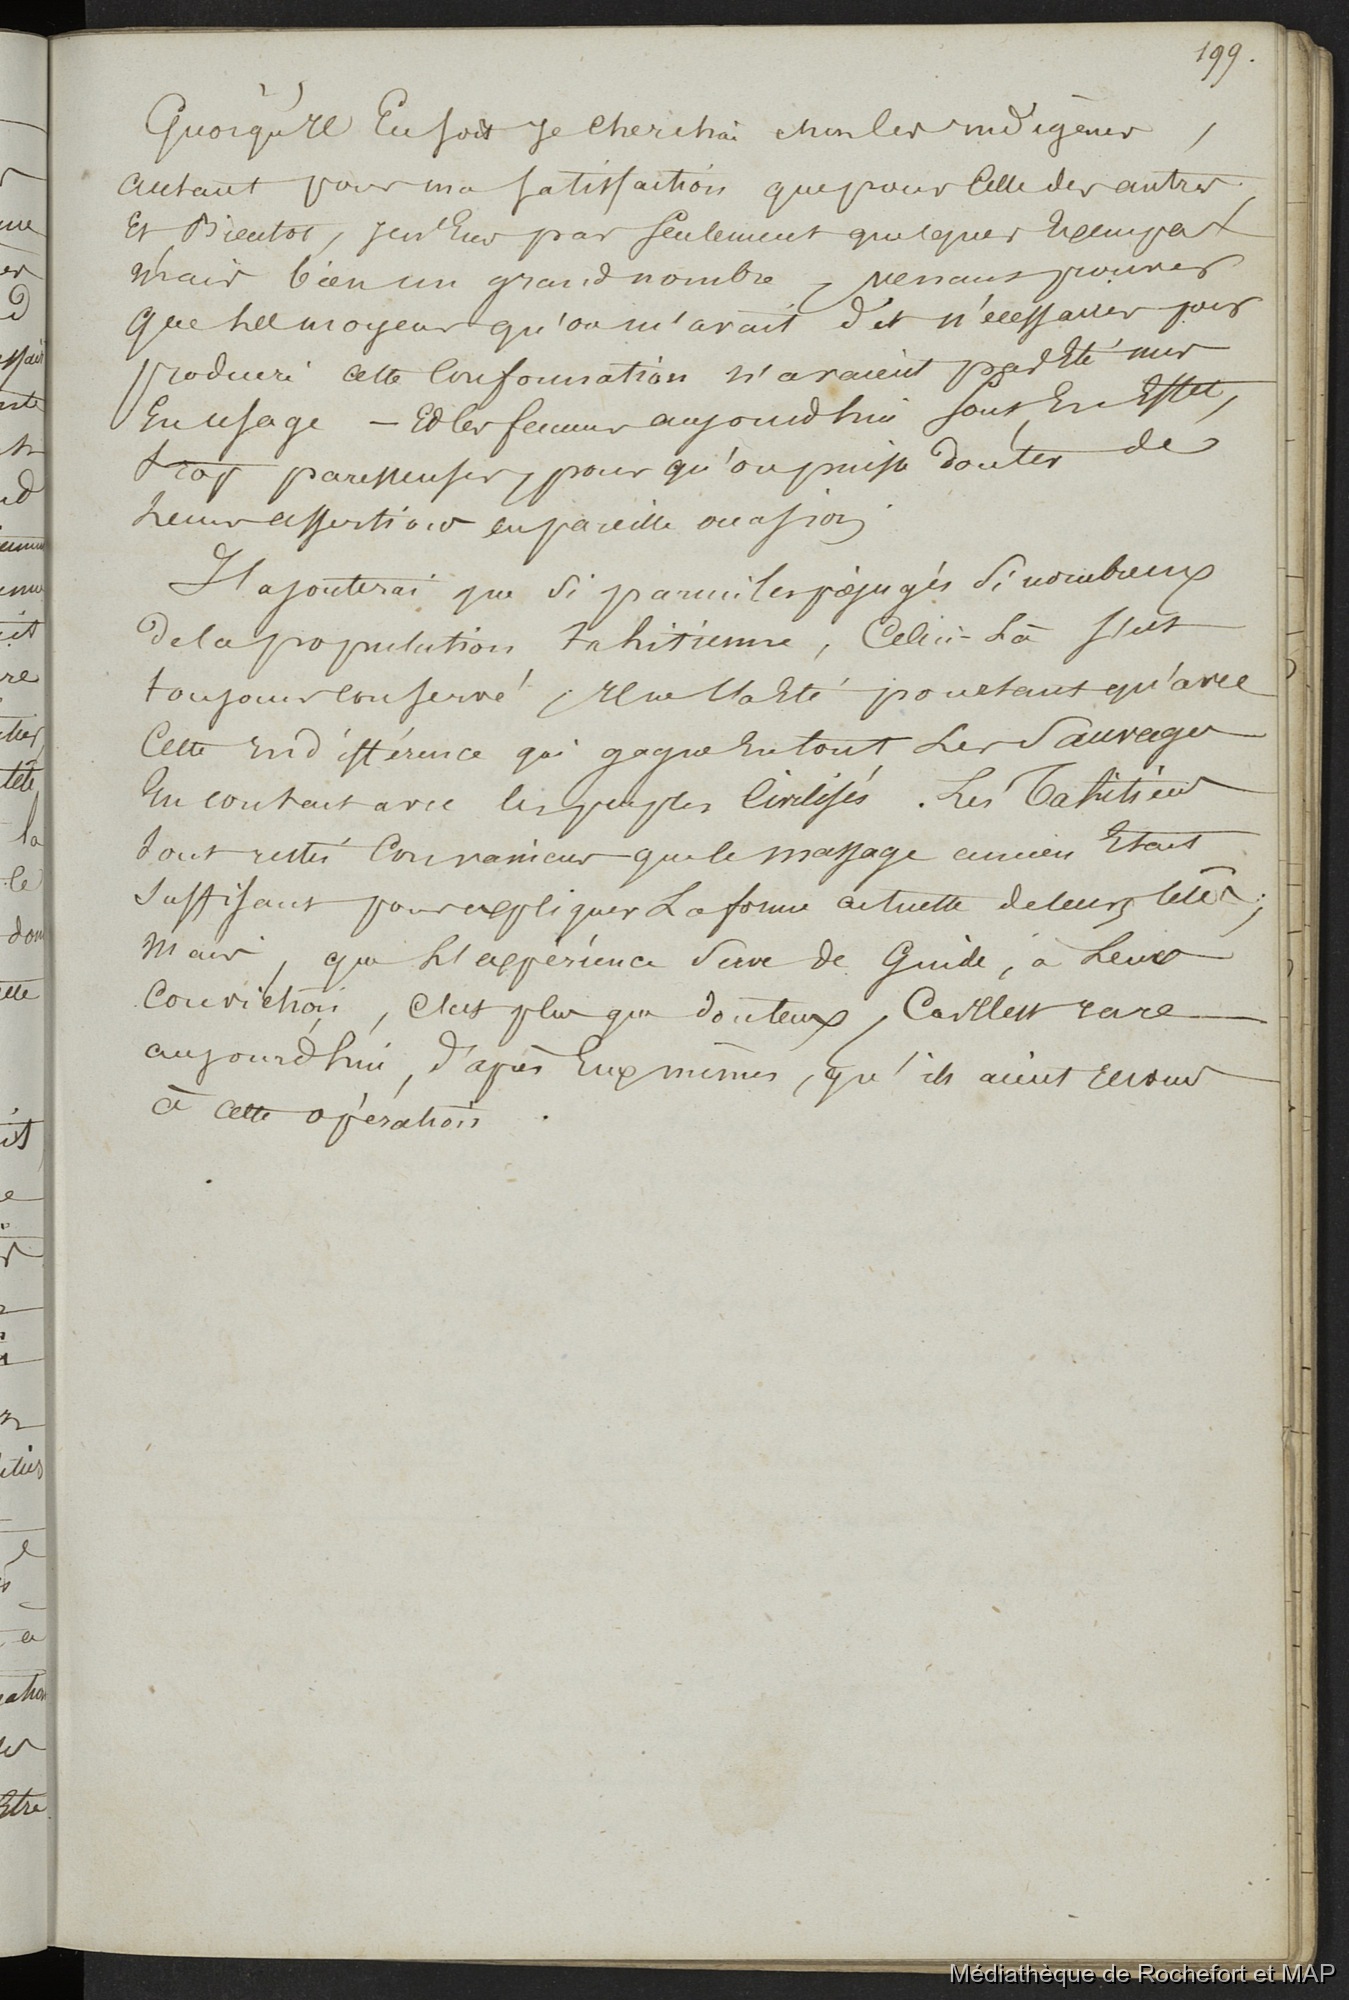 199.
Quoiqu'il En soit je cherchai chez les indigènes,
autant pour ma satisfaction que pour Celle des autres
Et Bientot, j'en Eus pas seulement quelques Exemples
mais bien un grand nombre, venant prouver
que les moyens qu'on m'avait dit nécessaires pour
produire cette Conformation n'avaient pas Eté mis
En usage — Et les femmes aujourdhui sont, En Effet,
trop paresseuses, pour qu'on puisse douter de
Leurs assertions en pareille occasion
J'ajouterai que si parmi les préjugés si nombreux
De la population tahitienne, Celui-là s'est
toujours conservé, il ne l'a Eté pourtant qu'avec
Cette indifférence qui gagne En tout Les Sauvages
En contact avec les peuples Civilisés. Les Tahitiens
sont restés Convaincus que le massage ancien Etait
suffisant pour expliquer La forme actuelle de leurs têtes;
Mais, que L'expérience serve de Guide, à Leur
Conviction, c'est plus que douteux, Car il est rare
aujourd'hui, d'après Eux mêmes, qu'ils aient recours
à cette opération.
Médiathèque de Rochefort et MAP